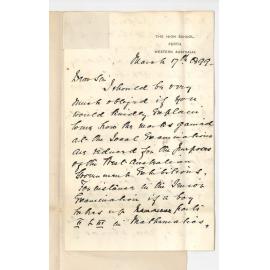 THE HIGH SCHOOL,
PERTH,
WESTERN AUSTRALIA.
March 17th 1899.
Dear Sir
I should be very
much obliged if you
would kindly explain
to me how the marks gained
at the Local Examinations
are reduced for the purposes
of the West Australian
Government Exhibitions.
For instance in the Senior
Examination if a boy
takes up parts
in Mathematics,